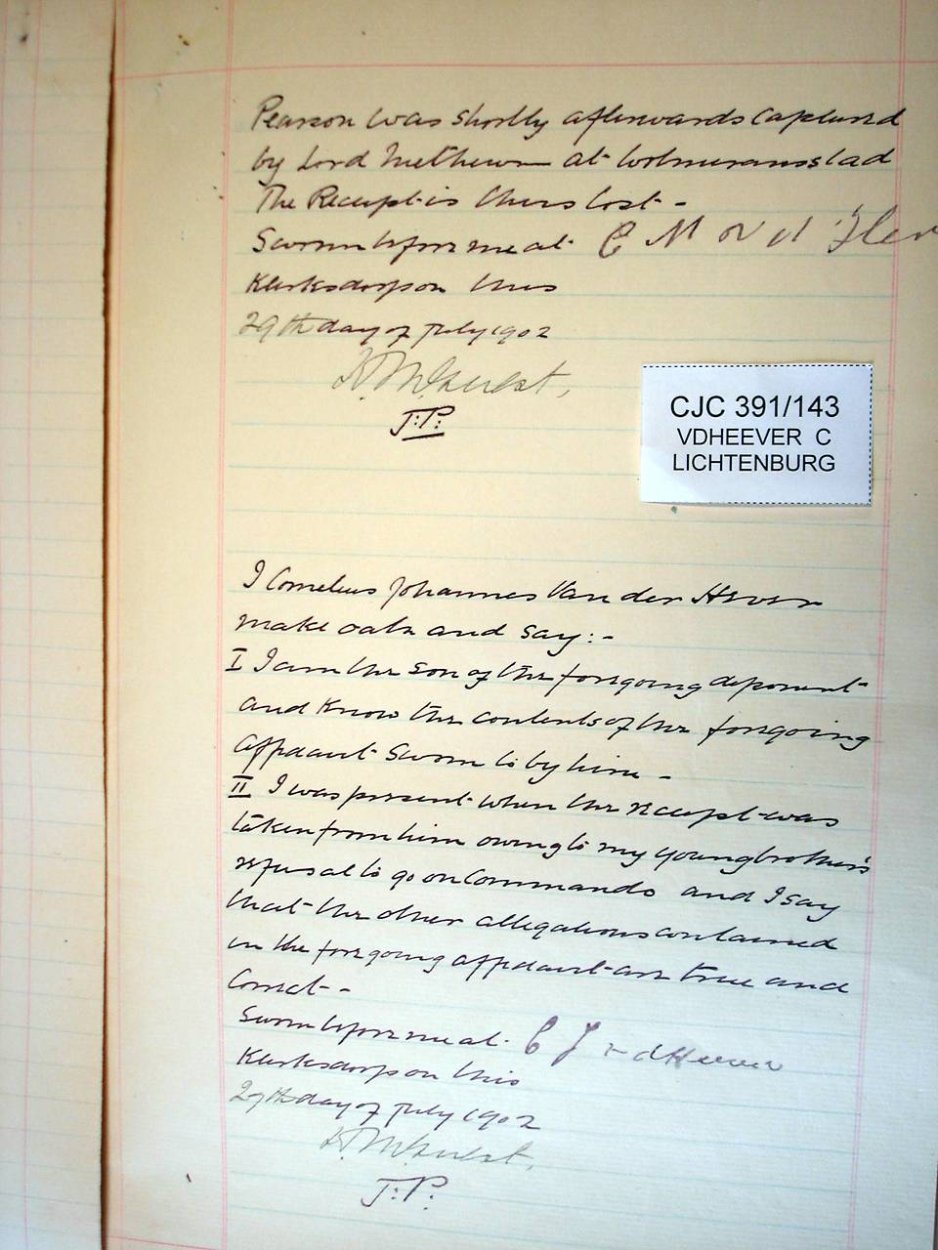 Pearson was shortly afterwards captured
by Lord Methuen at Wolmaransstad
The Receipt is thus lost -
Sworn before me at C M v d
Klerksdorp on this
29th day of July 1902
J:P:
CJC 391/143
VDHEEVER C
LICHTENBURG
I Cornelius Johannes Van der Hever
make oath and say:-
I I am the son of the foregoing deponent
and know the contents of the foregoing
affidavit sworn to by him -
II I was present when the receipt was
taken from him owing to my young brother's
refusal to go on Commando and I say
that the other allegations contained
in the foregoing affidavit are true and
Correct -
Sworn before me at C J v d Heever
Klerksdorp on this
29th day of July 1902
J:P: